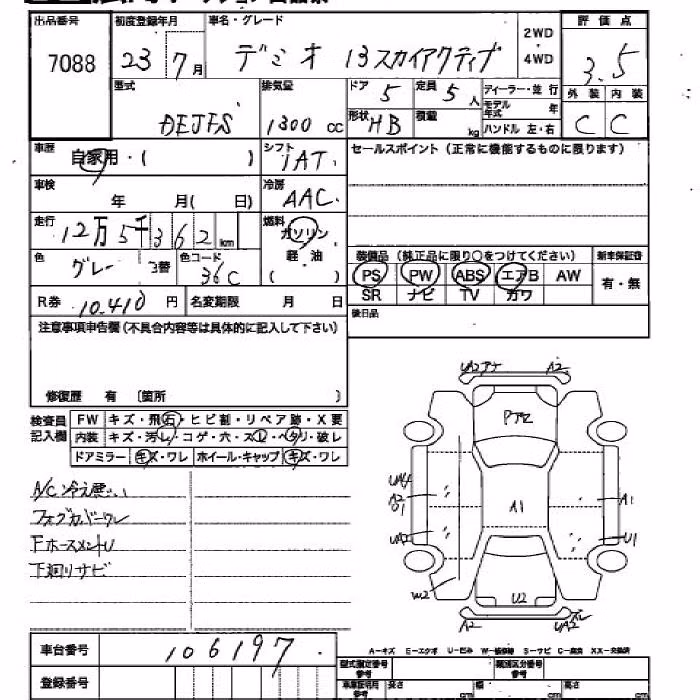 出品番号 初度登録年月 車名・グレード 2WD 評価点
7088 23 7月 デミオ 13スカイアクティブ ・ 3.5
4WD
型式 排気量 ドア 5 定員 5人 ディーラー・並行 外装 内装
DEJFS 1300 cc 形状 HB 積載 kg モデル年式 年 C C
ハンドル 左・右
車歴 自家用・( ) シフト IAT セールスポイント(正常に機能するものに限ります)
車検 年 月( 日) 冷房 AAC
走行 12万5千362km 燃料 ガソリン
軽油
( )
色 グレー 3替 色コード 36C 装備品(純正品に限り○をつけてください) 新車保証書
PS PW ABS エアB AW 有・無
R券 10.410円 名変期限 月 日 SR ナビ TV カワ
注意事項申告欄(不具合内容等は具体的に記入して下さい) 後日品
修復歴 有 [箇所 ]
検査員 FW キズ・飛石・ヒビ割・リペア跡・X要
記入欄 内装 キズ・汚レ・コゲ・穴・スレ・ヘタリ・破レ
ドアミラー キズ・ワレ ホイール・キャップ キズ・ワレ
A/C冷え悪い
フォグカバーワレ
下廻りサビ
UA2 アナ A2
A2 A1 A1
U1
W2 U2
A2 UA2
車台番号 106197
登録番号
A-キズ E-エクボ U-凹み W-補修跡 S-サビ C-腐食 XX-交換済
型式指定番号 参考 類別区分番号 参考
車庫証明用 参考 長さ cm 幅 cm 高さ cm